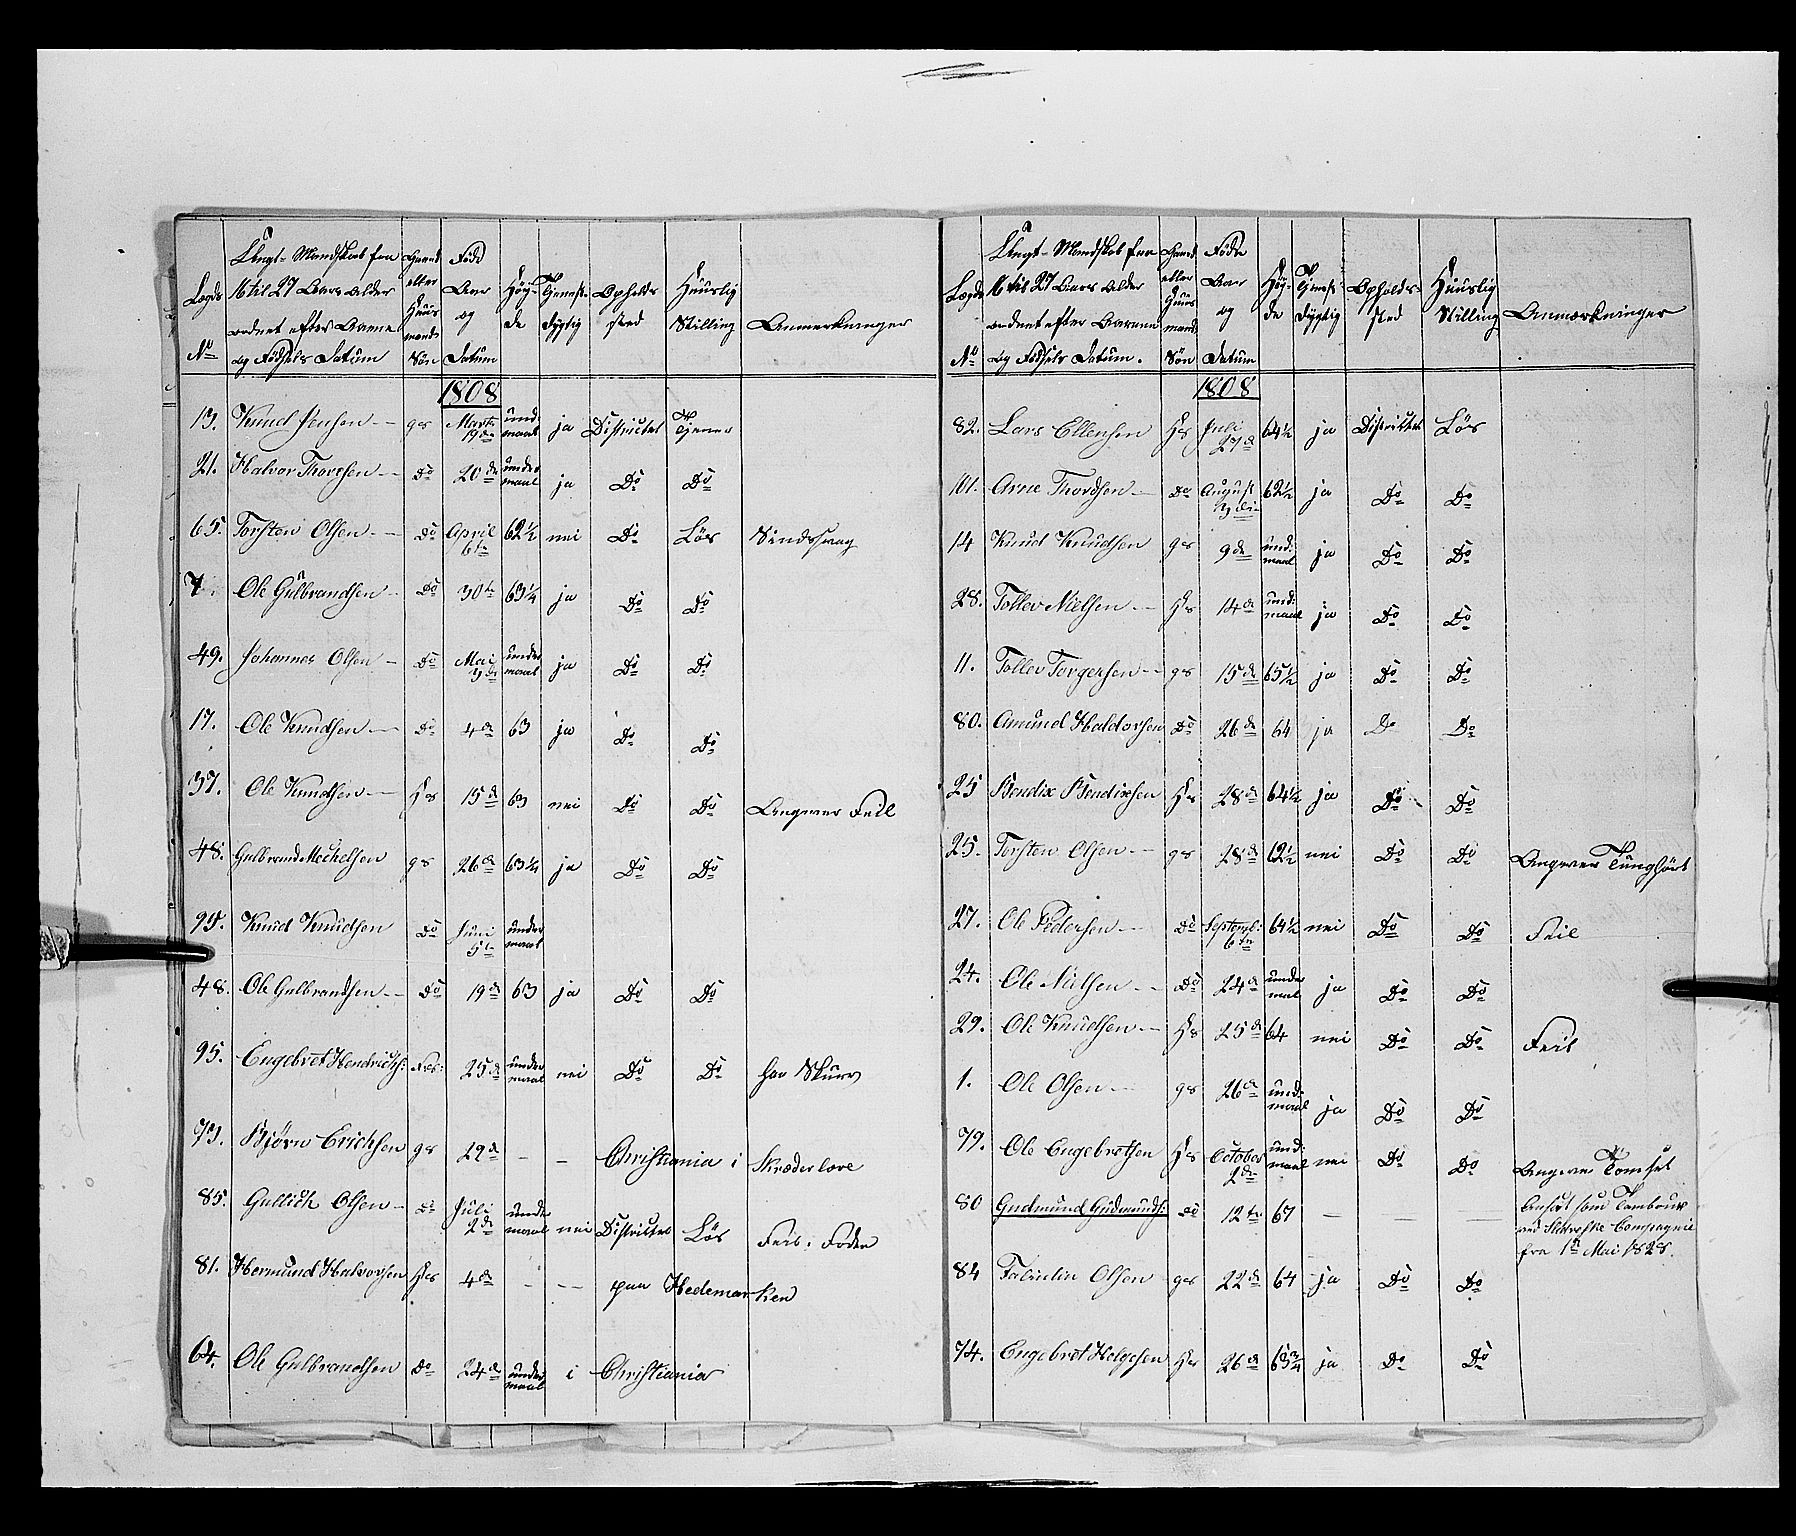 Lægds No | Ungt-Mandskab fra 16 til 27 Aars Alder ordnet efter Aarene og Fødsels Datum | Gaard eller Huus mands Søn | Føde Aar og Datum | Høyde | Tjenest dygtig | Opholds sted | Huuslig Stilling | Anmerkninger
1808
13. Knud Jensen gs Marts 19de und: maal ja Districtet Tjener
21. Halvor Thorsen Do 20de under maal ja Do Do
65. Torsten Olsen Do April 6te 62½ nei Do Løs Sindssvag
7. Ole Gulbrandsen Do 30te 63¼ ja Do Do
49. Johannes Olsen Do Mai 3die under maal ja Do Do
17. Ole Knudsen Do 4de 63 ja Do Do
37. Ole Knudsen Hs 15de 63 nei Do Do Angiver Feil
48. Gulbrand Mechelsen gs 26de 63¼ ja Do Do
95. Knud Knudsen Do Juni 5te under maal
48. Ole Gulbrandsen Do 19de 63 ja Do Do
95. Engebret Hendrichs: Hs: 25de under maal nei Do Do har Skurv
73. Bjørn Erichsen gs 29de - - Christiania i Skræderlære
85. Gullich Olsen Do Juli 2de under maal nei Districtet Løs Feil: Foden
81. Hermund Halvorsen Hs 4de - - paa Hedemarken
64. Ole Gulbrandsen Do 24de under maal i Christiania
Lægds No | Ungt-Mandskab fra 16 til 27 Aars Alder ordnet efter Aarene og Fødsels Datum. | Gaard eller Huus mands Søn | Føde Aar og Datum | Høyde | Tjenest dygtig | Opholds sted | Huuslig Stilling | Anmærkninger
1808
82. Lars Ellensen Hs Juli 27de 64½ ja Districtet Løs
101. Arne Thordsen Do August 3die 62½ ja Do Do
14 Knud Knudsen gs 9de und: maal ja Do Do
28. Tollev Nielsen Hs 14de und: maal ja Do Do
11. Tollev Torgersen gs 15de 65½ ja Do Do
80. Amund Haldorsen Do 26de 64 ja Do Do
25 Bendix Bendixsen Hs 28de 64½ ja Do Do
25. Torsten Olsen gs 28de 62½ nei Do Do Angiver Tunghørt
27. Ole Pedersen Do Septemb: 6te 64½ nei Do Do Feil
24. Ole Nielsen Do 24de under maal ja Do Do
29. Ole Knudsen Hs 25de 64 nei Do Do Feil
1. Ole Olsen gs 26de und: maal ja Do Do
79. Ole Engebretsen Hs October 2de und: maal nei Do Do Angiver
80 Gudmund Gudmunds: Do 12te 67 - - - Ansat som Tambour ved Compagnie fra 1te Mai 1828.
84 Olsen gs 22de 64 ja Do Do
74. Engebret Helgesen Hs 26de 63¾ ja Do Do